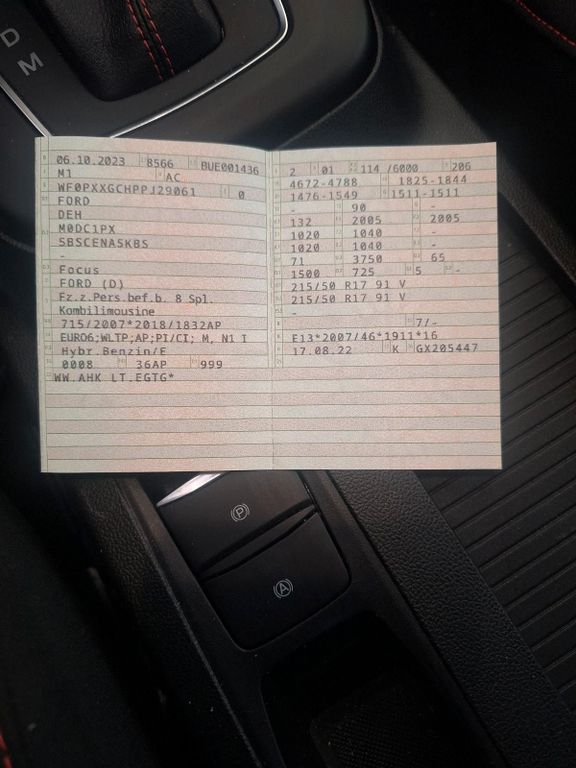 D
M
06.10.2023 8566 BUE001436
M1 AC
WF0PXXGCHPPJ29061 0
FORD
DEH
M0DC1PX
SBSCENA5KBS
-
Focus
FORD (D)
Fz.z.Pers.bef.b. 8 Spl.
Kombilimousine
715/2007*2018/1832AP
EURO6;WLTP;AP;PI/CI; M, N1 I
Hybr.Benzin/E
0008 36AP 999
WW.AHK LT.EGTG*
2 01 114 /6000 206
4672-4788 1825-1844
1476-1549 1511-1511
- 90 -
132 2005 2005
1020 1040 -
1020 1040 -
71 3750 65
1500 725 5 -
215/50 R17 91 V
215/50 R17 91 V
-
7/-
E13*2007/46*1911*16
17.08.22 K GX205447
P
A